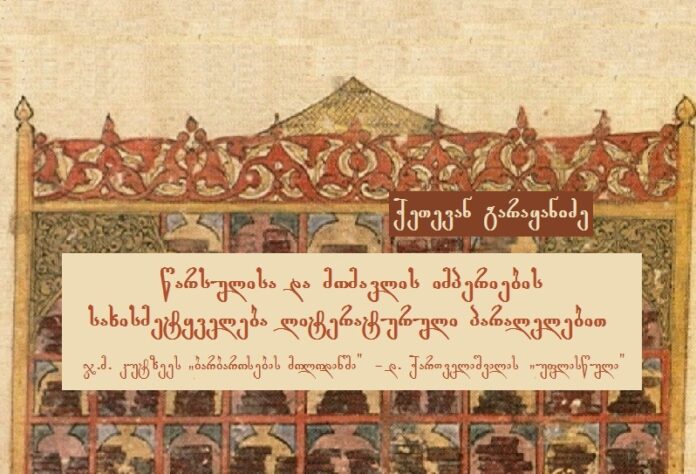 ქეთევან გარაყანიძე
წარსულისა და მომავლის იმპერიების
სახისმეტყველება ლიტერატურული პარალელებით
ჯ.მ. კუტზეეს „ბარბაროსების მოლოდინში" –დ. ქართველიშვილის „უფლისწული"